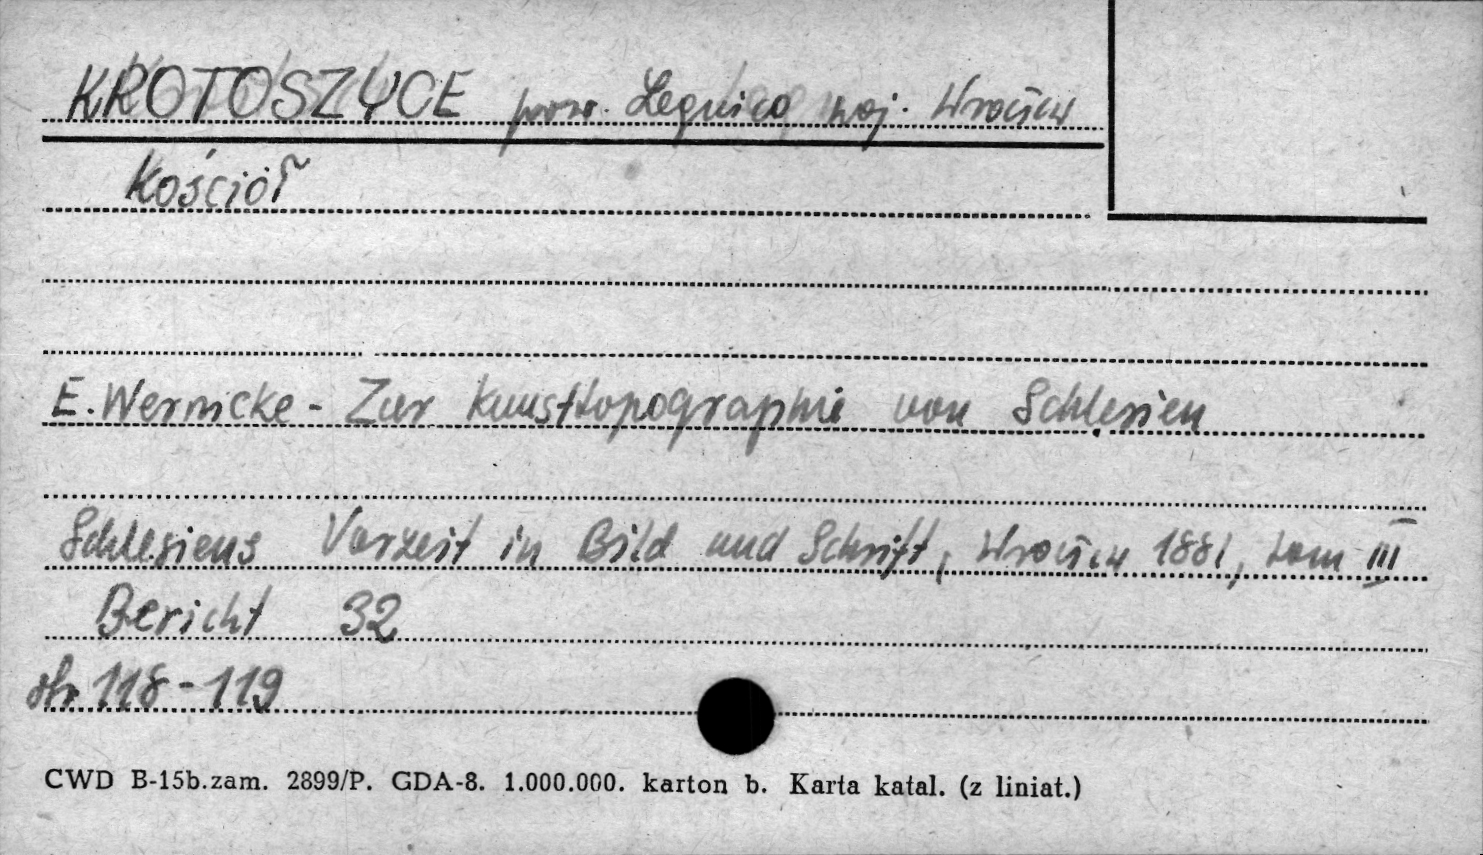 KROTOSZYCE pow. Legnica woj. Wrocław
Kościół
E. Wernicke - Zur Kunsttopographie von Schlesien
Schlesiens Vorzeit in Bild und Schrift, Wrocław 1881, tom III
Bericht 32
str. 118-119
CWD B-15b.zam. 2899/P. GDA-8. 1.000.000. karton b. Karta katal. (z liniat.)